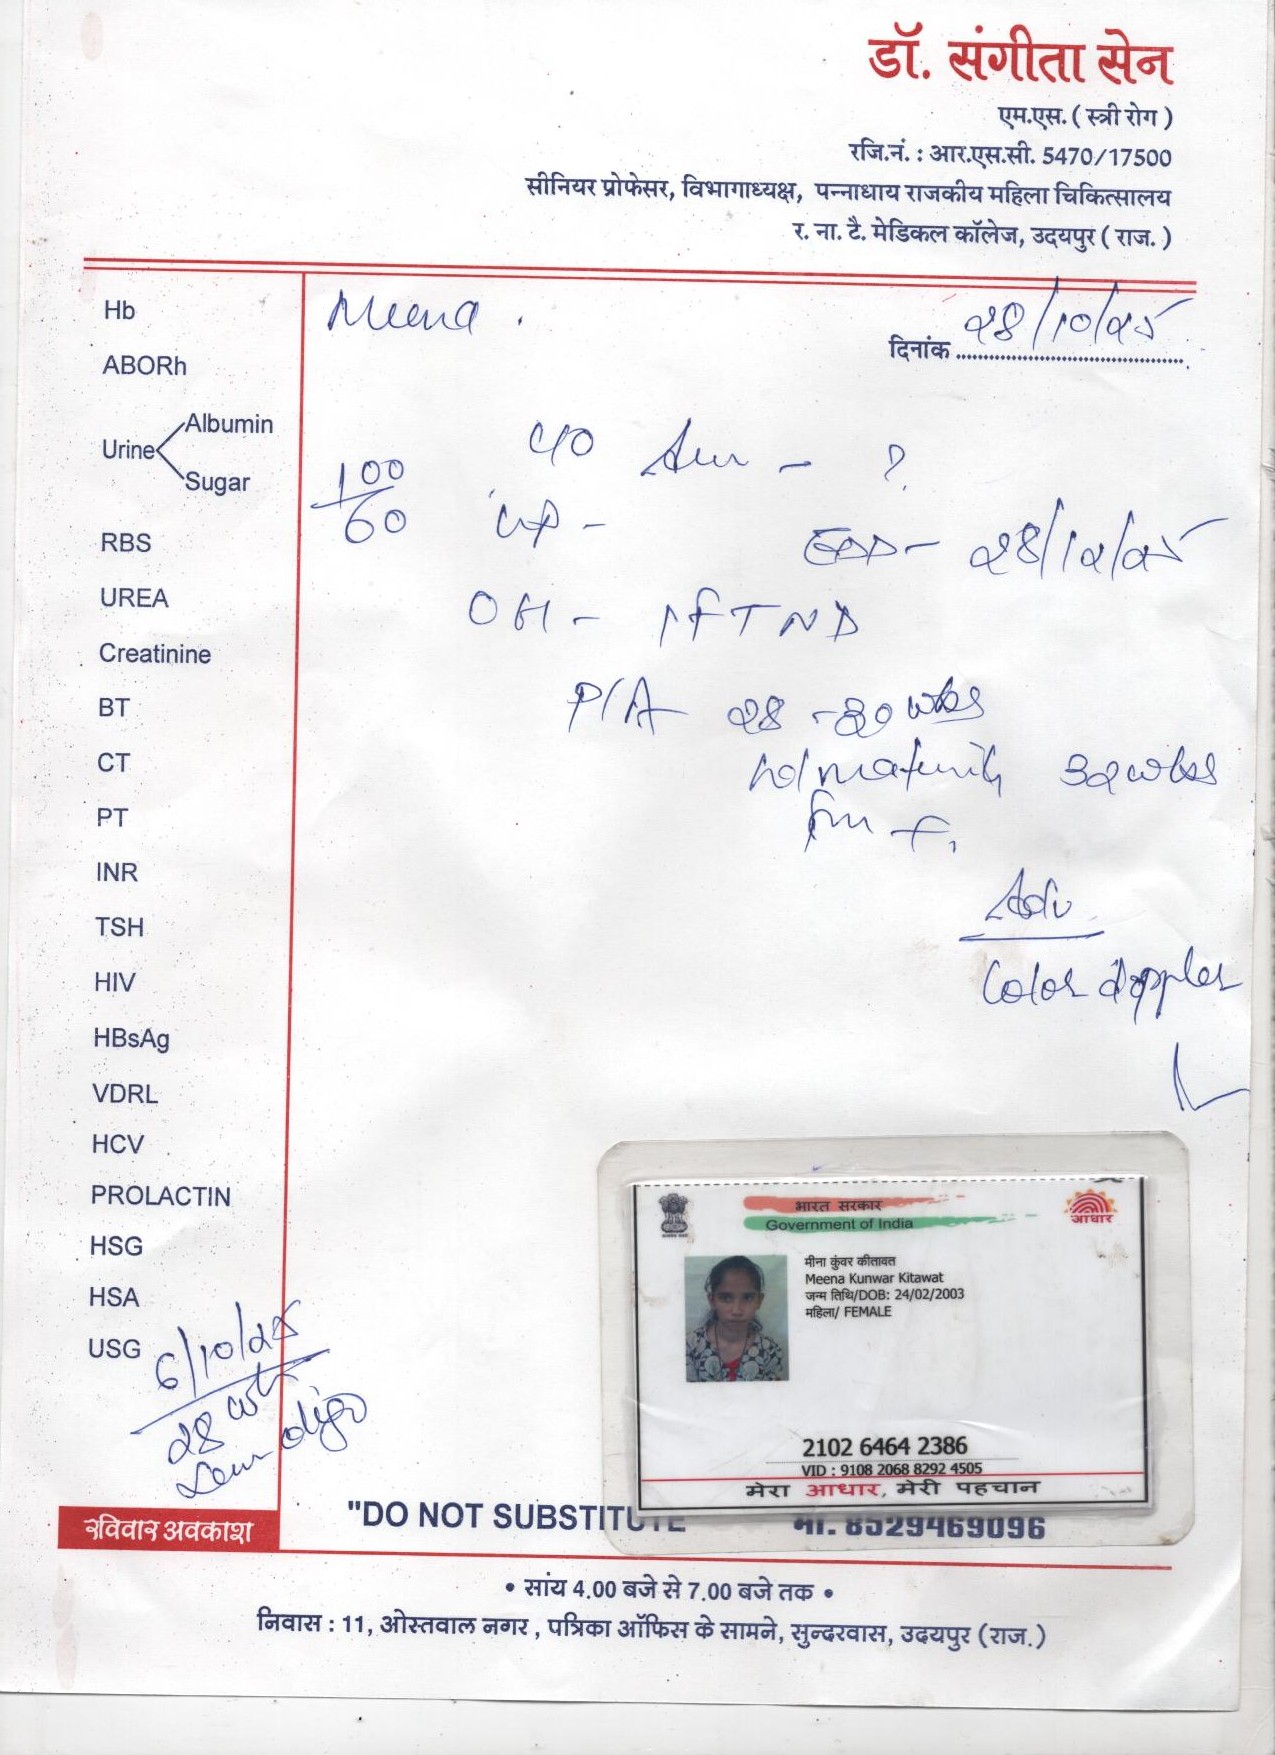 डॉ. संगीता सेन
एम.एस. ( स्त्री रोग )
रजि.नं. : आर.एस.सी. 5470/17500
सीनियर प्रोफेसर, विभागाध्यक्ष, पन्नाधाय राजकीय महिला चिकित्सालय
र. ना. टै. मेडिकल कॉलेज, उदयपुर ( राज. )
Meena .
दिनांक 28/10/25
Hb
ABORh
Urine
Albumin
Sugar
RBS
UREA
Creatinine
BT
CT
PT
INR
TSH
HIV
HBsAg
VDRL
HCV
PROLACTIN
HSG
HSA
USG
6/10/25
28
100/60
?
EDD - 28/12/25
OH - 1 FTND
P/A 28 - 30 wks
maturity 32 wks
Adv
Color doppler
भारत सरकार
Government of India
आधार
मीना कुंवर कीतावत
Meena Kunwar Kitawat
जन्म तिथि/DOB: 24/02/2003
महिला/ FEMALE
2102 6464 2386
VID : 9108 2068 8292 4505
मेरा आधार, मेरी पहचान
रविवार अवकाश
"DO NOT SUBSTITUTE
मो. 8529469096
• सांय 4.00 बजे से 7.00 बजे तक •
निवास : 11, ओस्तवाल नगर , पत्रिका ऑफिस के सामने, सुन्दरवास, उदयपुर (राज.)